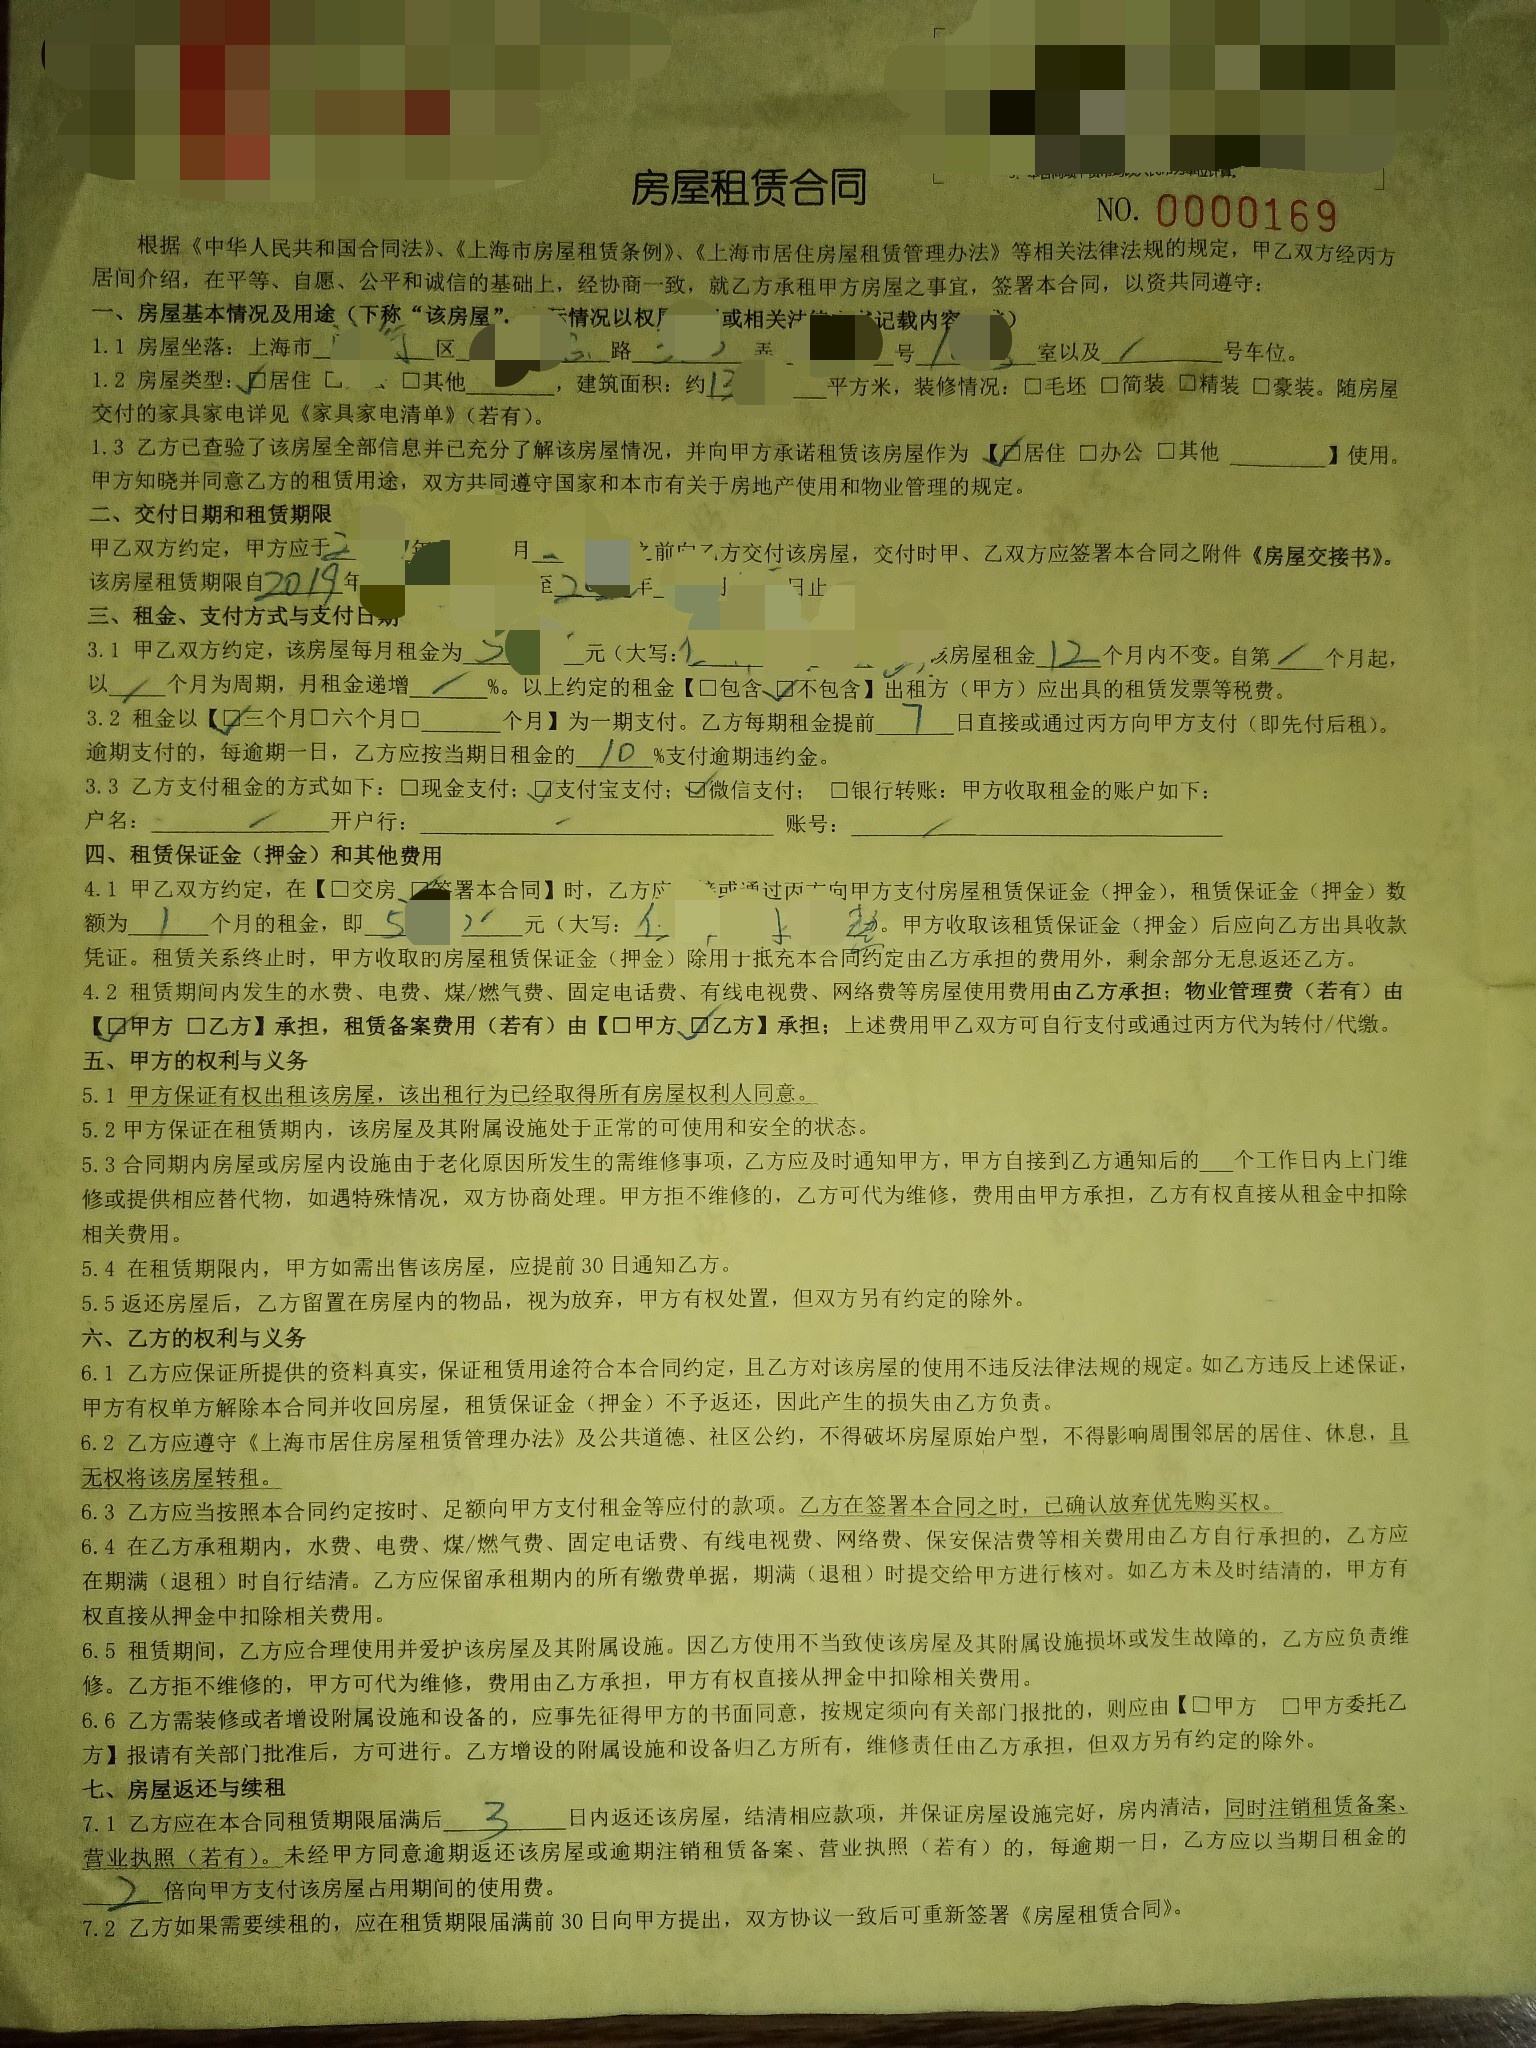 房屋租赁合同
NO. 0000169
根据《中华人民共和国合同法》、《上海市房屋租赁条例》、《上海市居住房屋租赁管理办法》等相关法律法规的规定，甲乙双方经丙方
居间介绍，在平等、自愿、公平和诚信的基础上，经协商一致，就乙方承租甲方房屋之事宜，签署本合同，以资共同遵守：
一、房屋基本情况及用途（下称“该房屋”. 情况以权 或相关法 记载内容 ）
1.1 房屋坐落：上海市 区 路 弄 号 室以及 / 号车位。
1.2 房屋类型：☑居住 □其他 ，建筑面积：约 平方米，装修情况：□毛坯 □简装 ☑精装 □豪装。随房屋
交付的家具家电详见《家具家电清单》（若有）。
1.3 乙方已查验了该房屋全部信息并已充分了解该房屋情况，并向甲方承诺租赁该房屋作为 【☑居住 □办公 □其他 】使用。
甲方知晓并同意乙方的租赁用途，双方共同遵守国家和本市有关于房地产使用和物业管理的规定。
二、交付日期和租赁期限
甲乙双方约定，甲方应于 年 月 之前向乙方交付该房屋，交付时甲、乙双方应签署本合同之附件《房屋交接书》。
该房屋租赁期限自2019年 至 年 日止
三、租金、支付方式与支付日期
3.1 甲乙双方约定，该房屋每月租金为 元（大写： 该房屋租金 12 个月内不变。自第 / 个月起，
以 / 个月为周期，月租金递增 / %。以上约定的租金【□包含 ☑不包含】出租方（甲方）应出具的租赁发票等税费。
3.2 租金以【☑三个月□六个月□ 个月】为一期支付。乙方每期租金提前 7 日直接或通过丙方向甲方支付（即先付后租）。
逾期支付的，每逾期一日，乙方应按当期日租金的 10 %支付逾期违约金。
3.3 乙方支付租金的方式如下：□现金支付；☑支付宝支付；☑微信支付； □银行转账：甲方收取租金的账户如下：
户名： / 开户行： / 账号： /
四、租赁保证金（押金）和其他费用
4.1 甲乙双方约定，在【□交房 ☑签署本合同】时，乙方应 或通过丙方向甲方支付房屋租赁保证金（押金），租赁保证金（押金）数
额为 1 个月的租金，即 元（大写： 整。甲方收取该租赁保证金（押金）后应向乙方出具收款
凭证。租赁关系终止时，甲方收取的房屋租赁保证金（押金）除用于抵充本合同约定由乙方承担的费用外，剩余部分无息返还乙方。
4.2 租赁期间内发生的水费、电费、煤/燃气费、固定电话费、有线电视费、网络费等房屋使用费用由乙方承担；物业管理费（若有）由
【☑甲方 □乙方】承担，租赁备案费用（若有）由【□甲方 ☑乙方】承担；上述费用甲乙双方可自行支付或通过丙方代为转付/代缴。
五、甲方的权利与义务
5.1 甲方保证有权出租该房屋，该出租行为已经取得所有房屋权利人同意。
5.2 甲方保证在租赁期内，该房屋及其附属设施处于正常的可使用和安全的状态。
5.3 合同期内房屋或房屋内设施由于老化原因所发生的需维修事项，乙方应及时通知甲方，甲方自接到乙方通知后的___个工作日内上门维
修或提供相应替代物，如遇特殊情况，双方协商处理。甲方拒不维修的，乙方可代为维修，费用由甲方承担，乙方有权直接从租金中扣除
相关费用。
5.4 在租赁期限内，甲方如需出售该房屋，应提前30日通知乙方。
5.5 返还房屋后，乙方留置在房屋内的物品，视为放弃，甲方有权处置，但双方另有约定的除外。
六、乙方的权利与义务
6.1 乙方应保证所提供的资料真实，保证租赁用途符合本合同约定，且乙方对该房屋的使用不违反法律法规的规定。如乙方违反上述保证，
甲方有权单方解除本合同并收回房屋，租赁保证金（押金）不予返还，因此产生的损失由乙方负责。
6.2 乙方应遵守《上海市居住房屋租赁管理办法》及公共道德、社区公约，不得破坏房屋原始户型，不得影响周围邻居的居住、休息，且
无权将该房屋转租。
6.3 乙方应当按照本合同约定按时、足额向甲方支付租金等应付的款项。乙方在签署本合同之时，已确认放弃优先购买权。
6.4 在乙方承租期内，水费、电费、煤/燃气费、固定电话费、有线电视费、网络费、保安保洁费等相关费用由乙方自行承担的，乙方应
在期满（退租）时自行结清。乙方应保留承租期内的所有缴费单据，期满（退租）时提交给甲方进行核对。如乙方未及时结清的，甲方有
权直接从押金中扣除相关费用。
6.5 租赁期间，乙方应合理使用并爱护该房屋及其附属设施。因乙方使用不当致使该房屋及其附属设施损坏或发生故障的，乙方应负责维
修。乙方拒不维修的，甲方可代为维修，费用由乙方承担，甲方有权直接从押金中扣除相关费用。
6.6 乙方需装修或者增设附属设施和设备的，应事先征得甲方的书面同意，按规定须向有关部门报批的，则应由【□甲方 □甲方委托乙
方】报请有关部门批准后，方可进行。乙方增设的附属设施和设备归乙方所有，维修责任由乙方承担，但双方另有约定的除外。
七、房屋返还与续租
7.1 乙方应在本合同租赁期限届满后 3 日内返还该房屋，结清相应款项，并保证房屋设施完好，房内清洁，同时注销租赁备案、
营业执照（若有）。未经甲方同意逾期返还该房屋或逾期注销租赁备案、营业执照（若有）的，每逾期一日，乙方应以当期日租金的
2 倍向甲方支付该房屋占用期间的使用费。
7.2 乙方如果需要续租的，应在租赁期限届满前30日向甲方提出，双方协议一致后可重新签署《房屋租赁合同》。